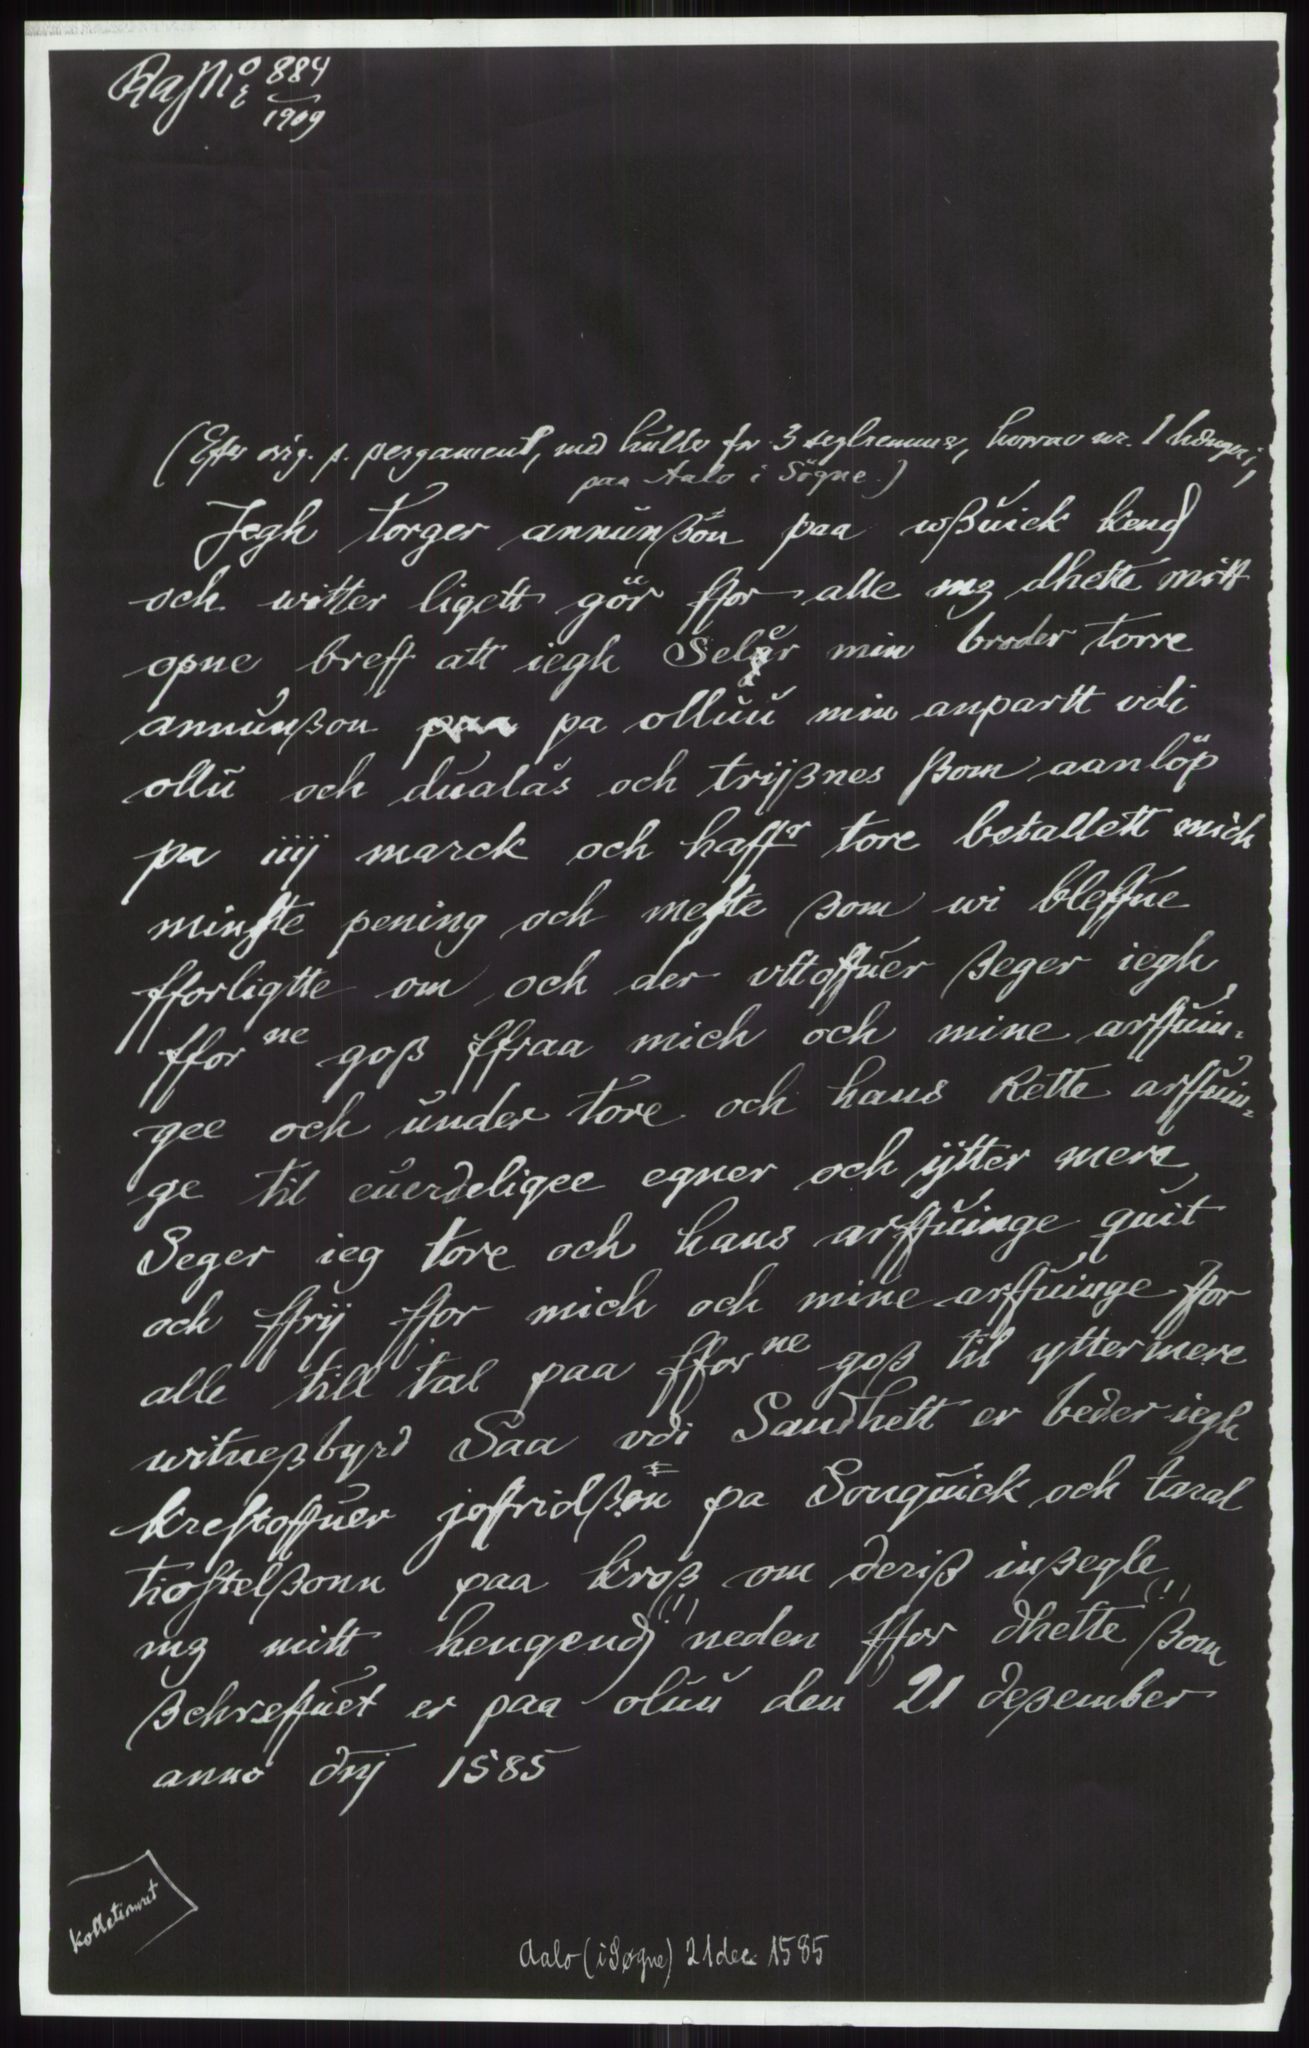 RA JNo 884
1909
(Efter orig. p. pergament, med huller for 3 seglremmer, hvorav nr. 1 hænger i,
paa Aalo i Søgne.)
Jegh torger annunßön paa wßuick kend
och witter ligett gör ffor alle mz dhette mitt
opne breff att iegh Seler min broder torre
annunßon pa olluu min anpartt vdi
ollu och dualås och trijßnes ßom aanlöp
pa iiij marck och haffr tore betallett mich
minste pening och meste ßom wi bleffue
fforligtte om och der vttoffuer ßeger iegh
ffor ne goß ffraa mich och mine arffuin-
gee och under tore och hans Rette arffuin=
ge til euerdeligee egner och ÿtter mere
Seger ieg tore och hans arffuinge quit
och ffrij ffor mich och mine arffuinge ffor
alle till tal paa ffor ne goß til ytter mere
witneßbyrd Saa vdi Sandhett er beder iegh
krestoffuer joffridßøn pa Sonquick och taral
tiostelßonn paa kroß om deriß inßegle
mz mitt hengend (!) neden ffor dhette (!) ßom
ßchreffuet er paa oluu den 21 deßember
anno dnj 1585
kollationert
Aalo (i Søgne) 21 dec. 1585